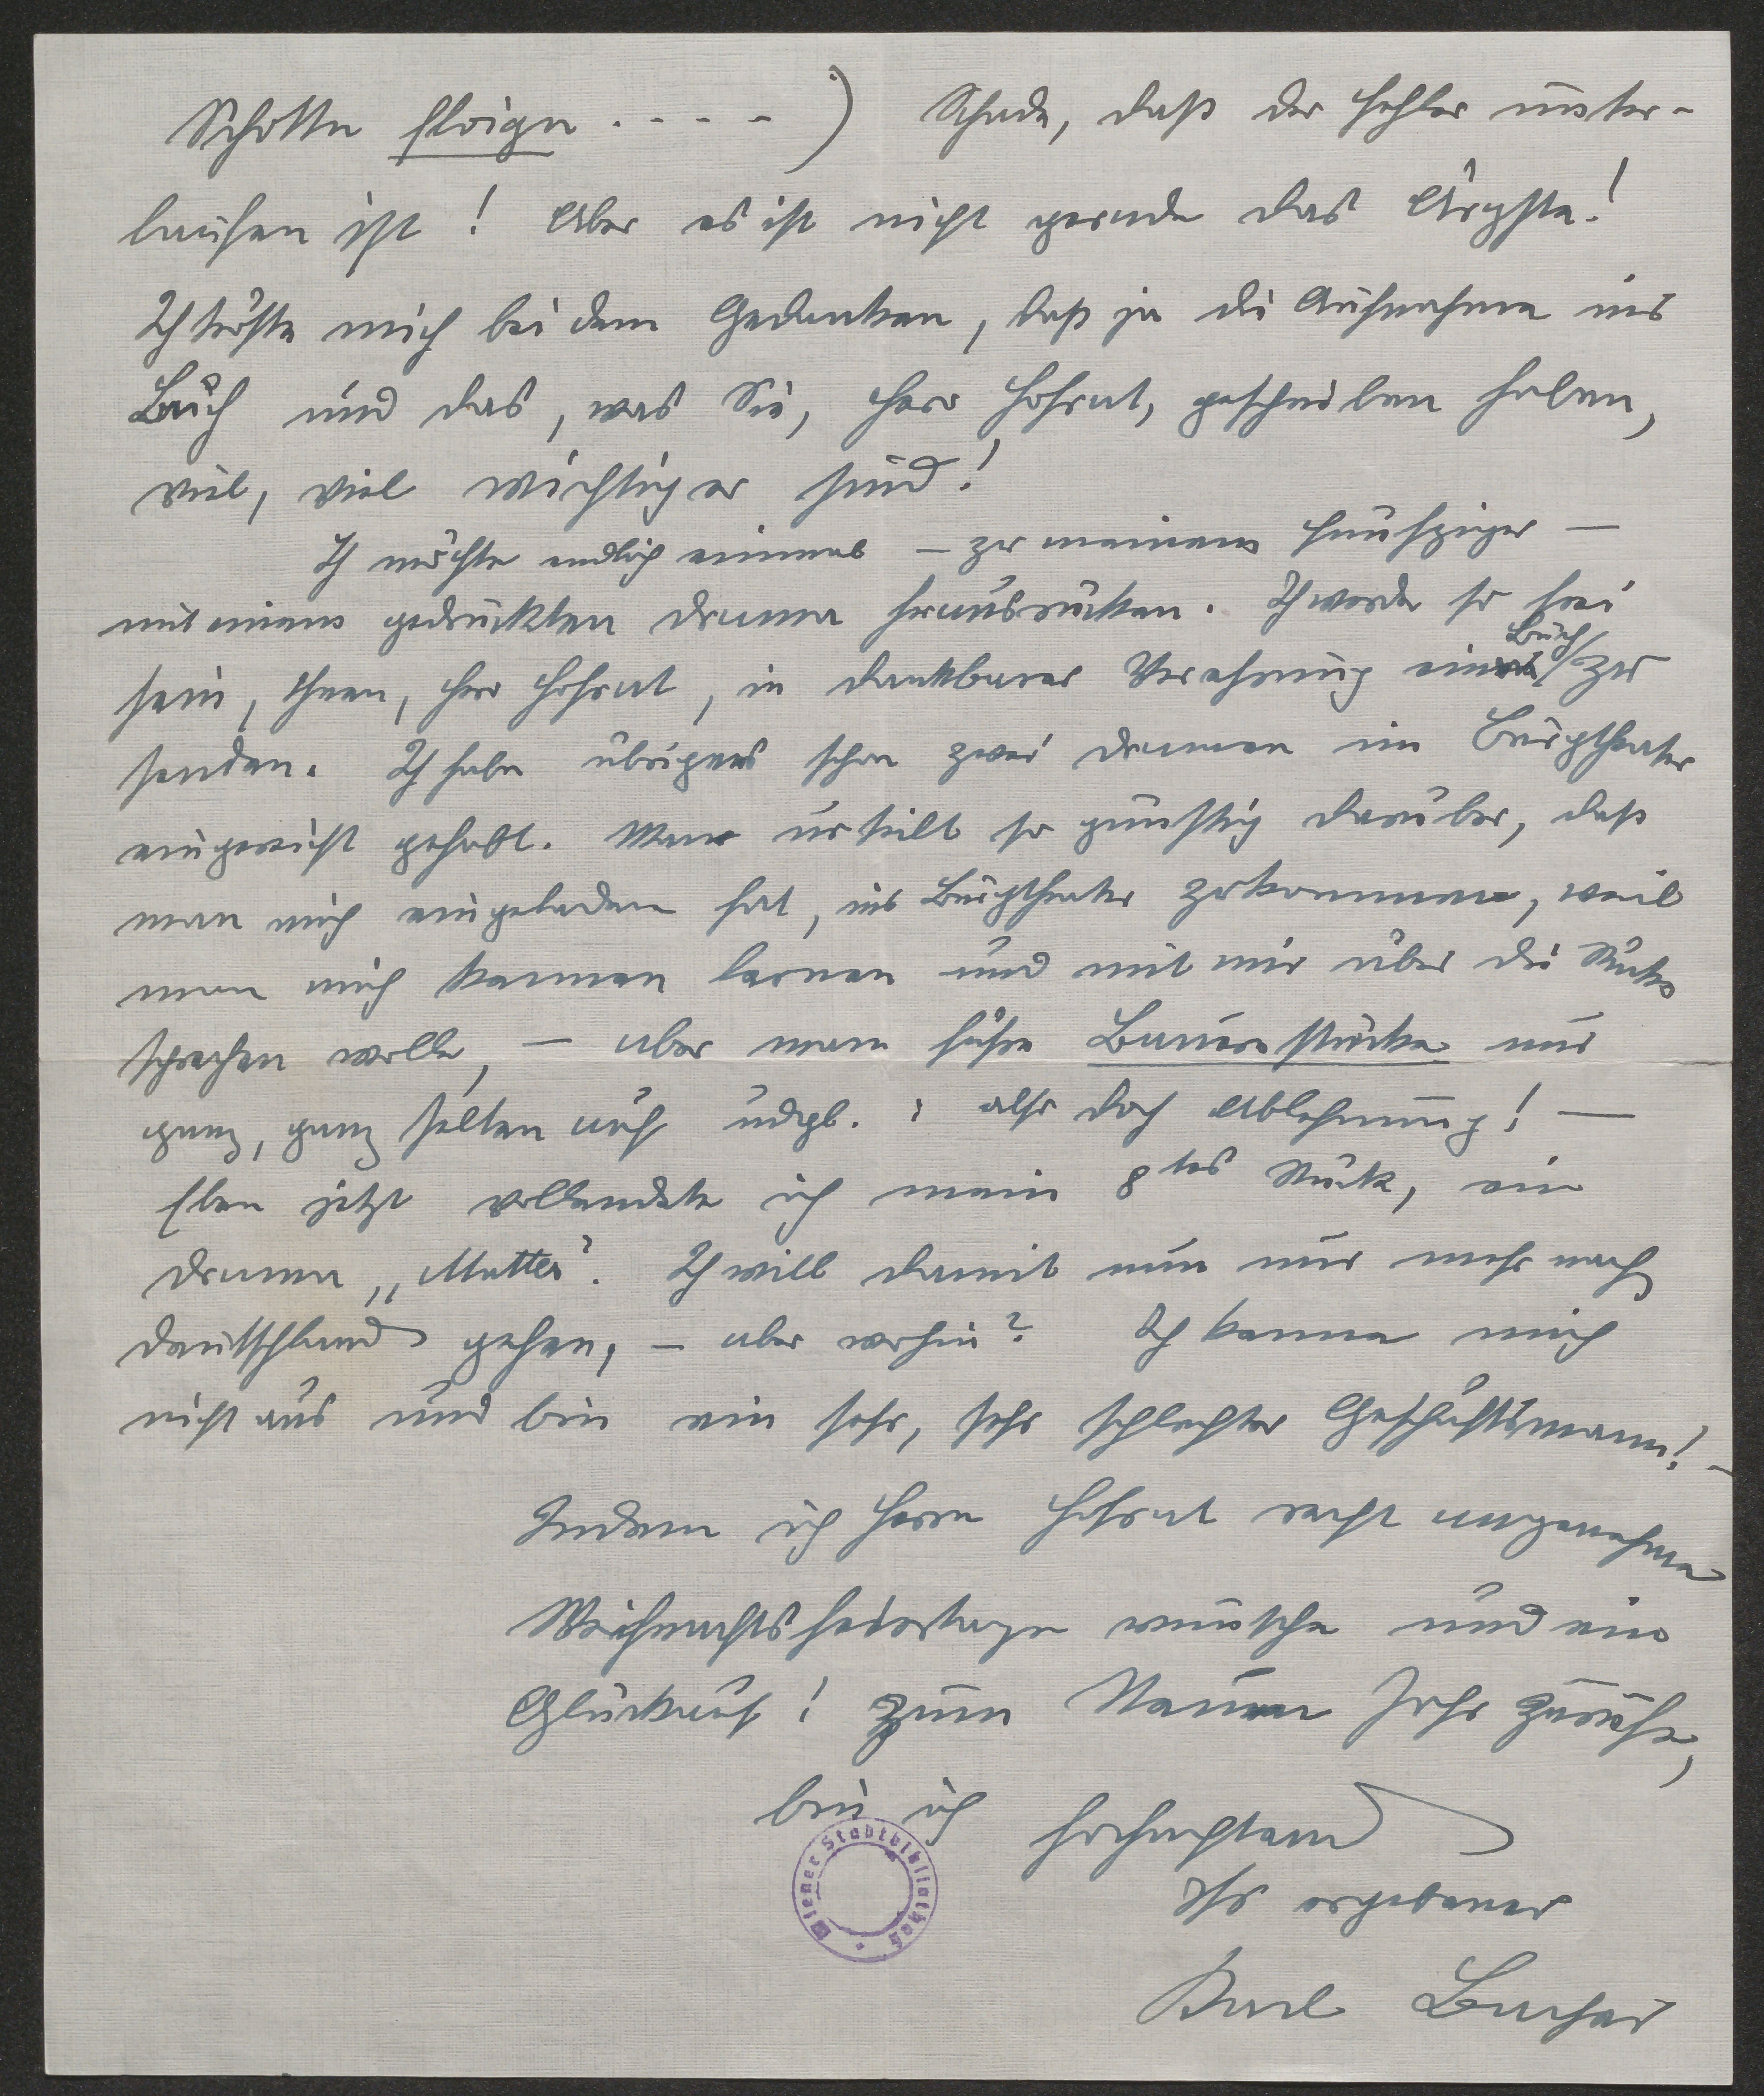 Schotte floign . . . . - ) Schade, daß der Fehler unter-
laufen ist ! Aber es ist nicht gerade das Ärgste!
Ich tröste mich bei dem Gedanken, daß ja die Aufnahme ins
Buch und das, was Sie, Herr Hofrat, geschrieben haben,
viel, viel wichtiger sind!
Ich möchte endlich einmal – zu meinem Fünfziger –
mit einem gedruckten Drama herausrücken. Ich werde so frei
sein, Ihnen, Herr Hofrat, in dankbarer Verehrung ein Buch zu
senden. Ich habe übrigens schon zwei Dramen im Burgtheater
eingereicht gehabt. Man urteilt so günstig darüber, daß
man mich eingeladen hat, ins Burgtheater zu kommen, weil
man mich kennen lernen und mit mir über die Stücke
sprechen wolle, – aber man führe Bauernstücke nur
ganz, ganz selten auf udgl. : also doch Ablehnung! —
Eben jetzt vollendete ich mein 8tes Stück, ein
Drama „Mutter". Ich will damit nun nur mehr nach
Deutschland gehen, – aber wohin? Ich kenne mich
nicht aus und bin ein sehr, sehr schlechter Geschäftsmann! –
Indem ich Herrn Hofrat recht angenehme
Weihnachtsfeiertage wünsche und ein
Glückauf! zum Neuen Jahr zurufe,
bin ich hochachtend
Ihr ergebener
Karl Bacher
Wiener Stadtbibliothek